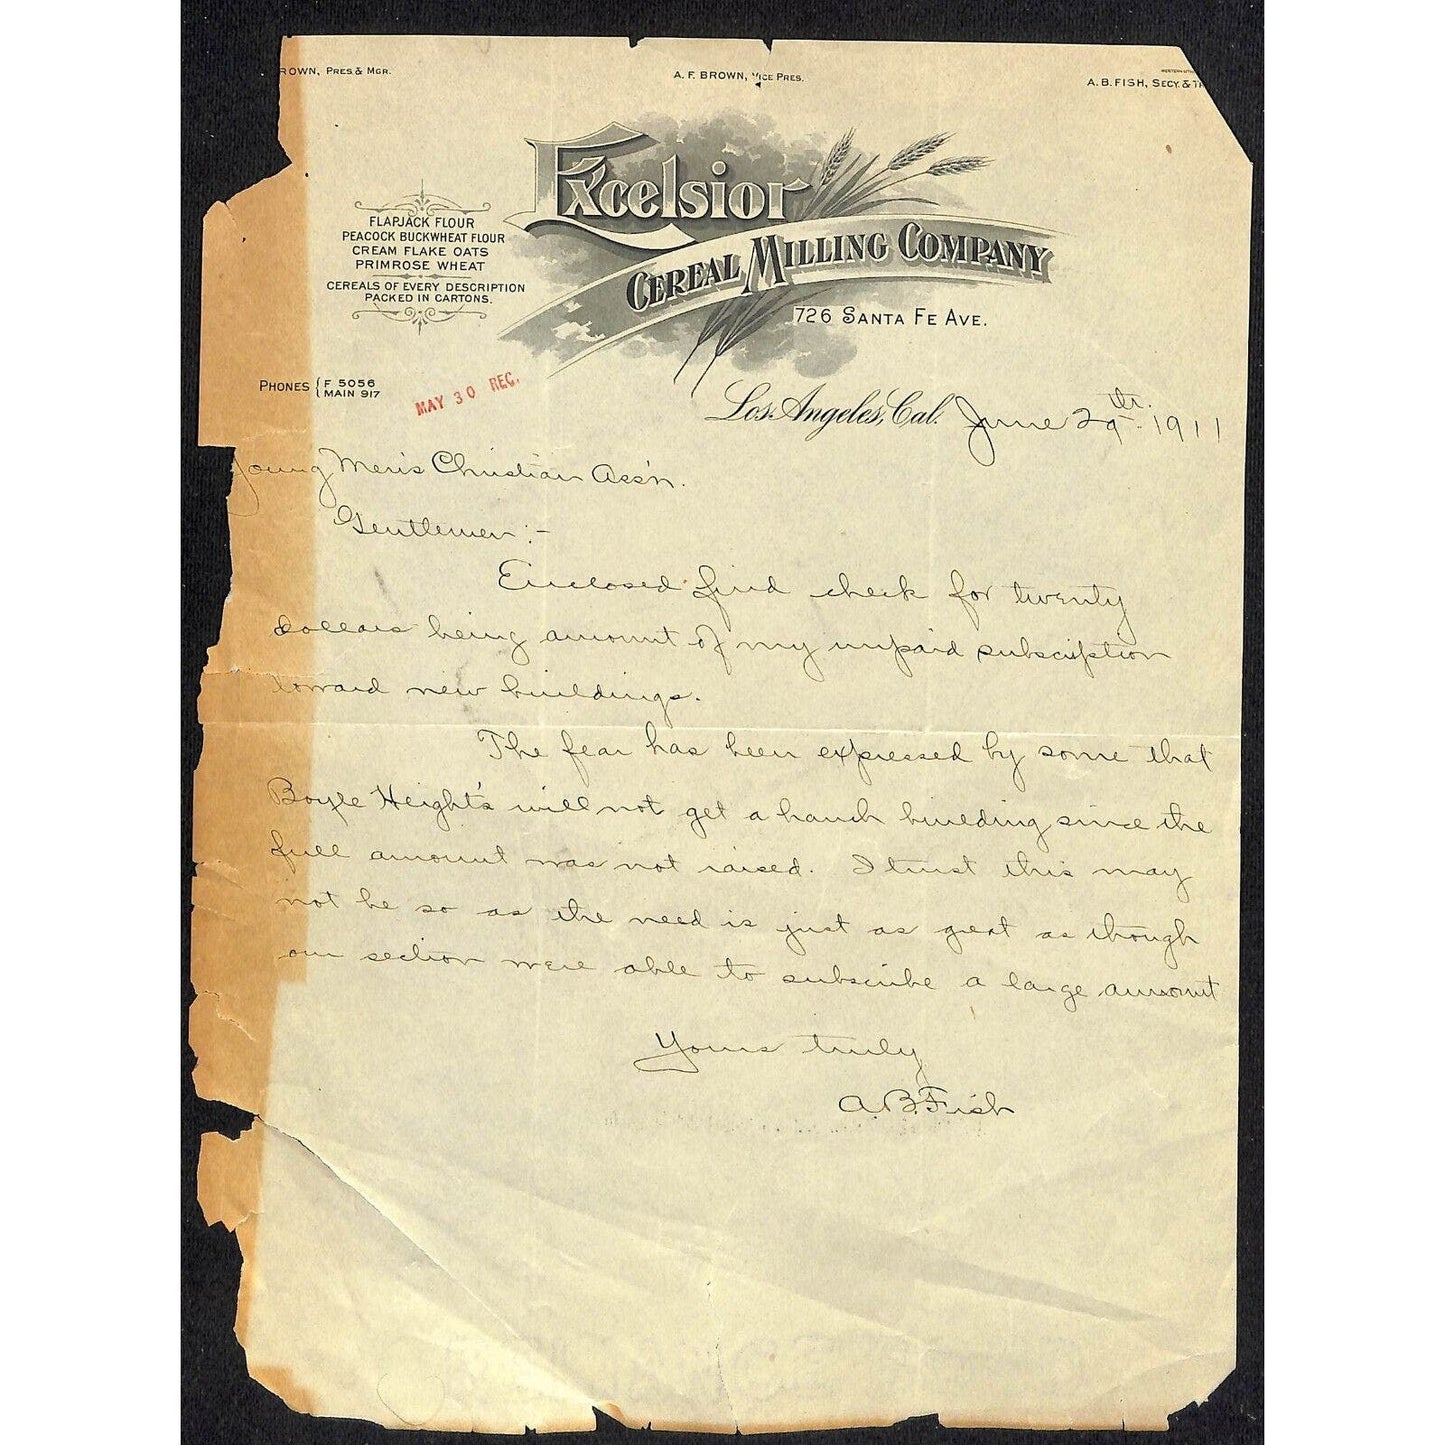 ROWN, PRES. & MGR.
A. F. BROWN, VICE PRES.
A. B. FISH, SECY. & TR
Excelsior
CEREAL MILLING COMPANY
726 SANTA FE AVE.
FLAPJACK FLOUR
PEACOCK BUCKWHEAT FLOUR
CREAM FLAKE OATS
PRIMROSE WHEAT
CEREALS OF EVERY DESCRIPTION
PACKED IN CARTONS.
PHONES { F 5056
MAIN 917
MAY 30 REC.
Los Angeles, Cal. June 29th. 1911
Young Men's Christian Ass'n.
Gentlemen:-
Enclosed find check for twenty
dollars being amount of my unpaid subscription
toward new buildings.
The fear has been expressed by some that
Boyle Height's will not get a branch building since the
full amount was not raised. I trust this may
not be so as the need is just as great as though
our section were able to subscribe a large amount
Yours truly
A. B. Fish